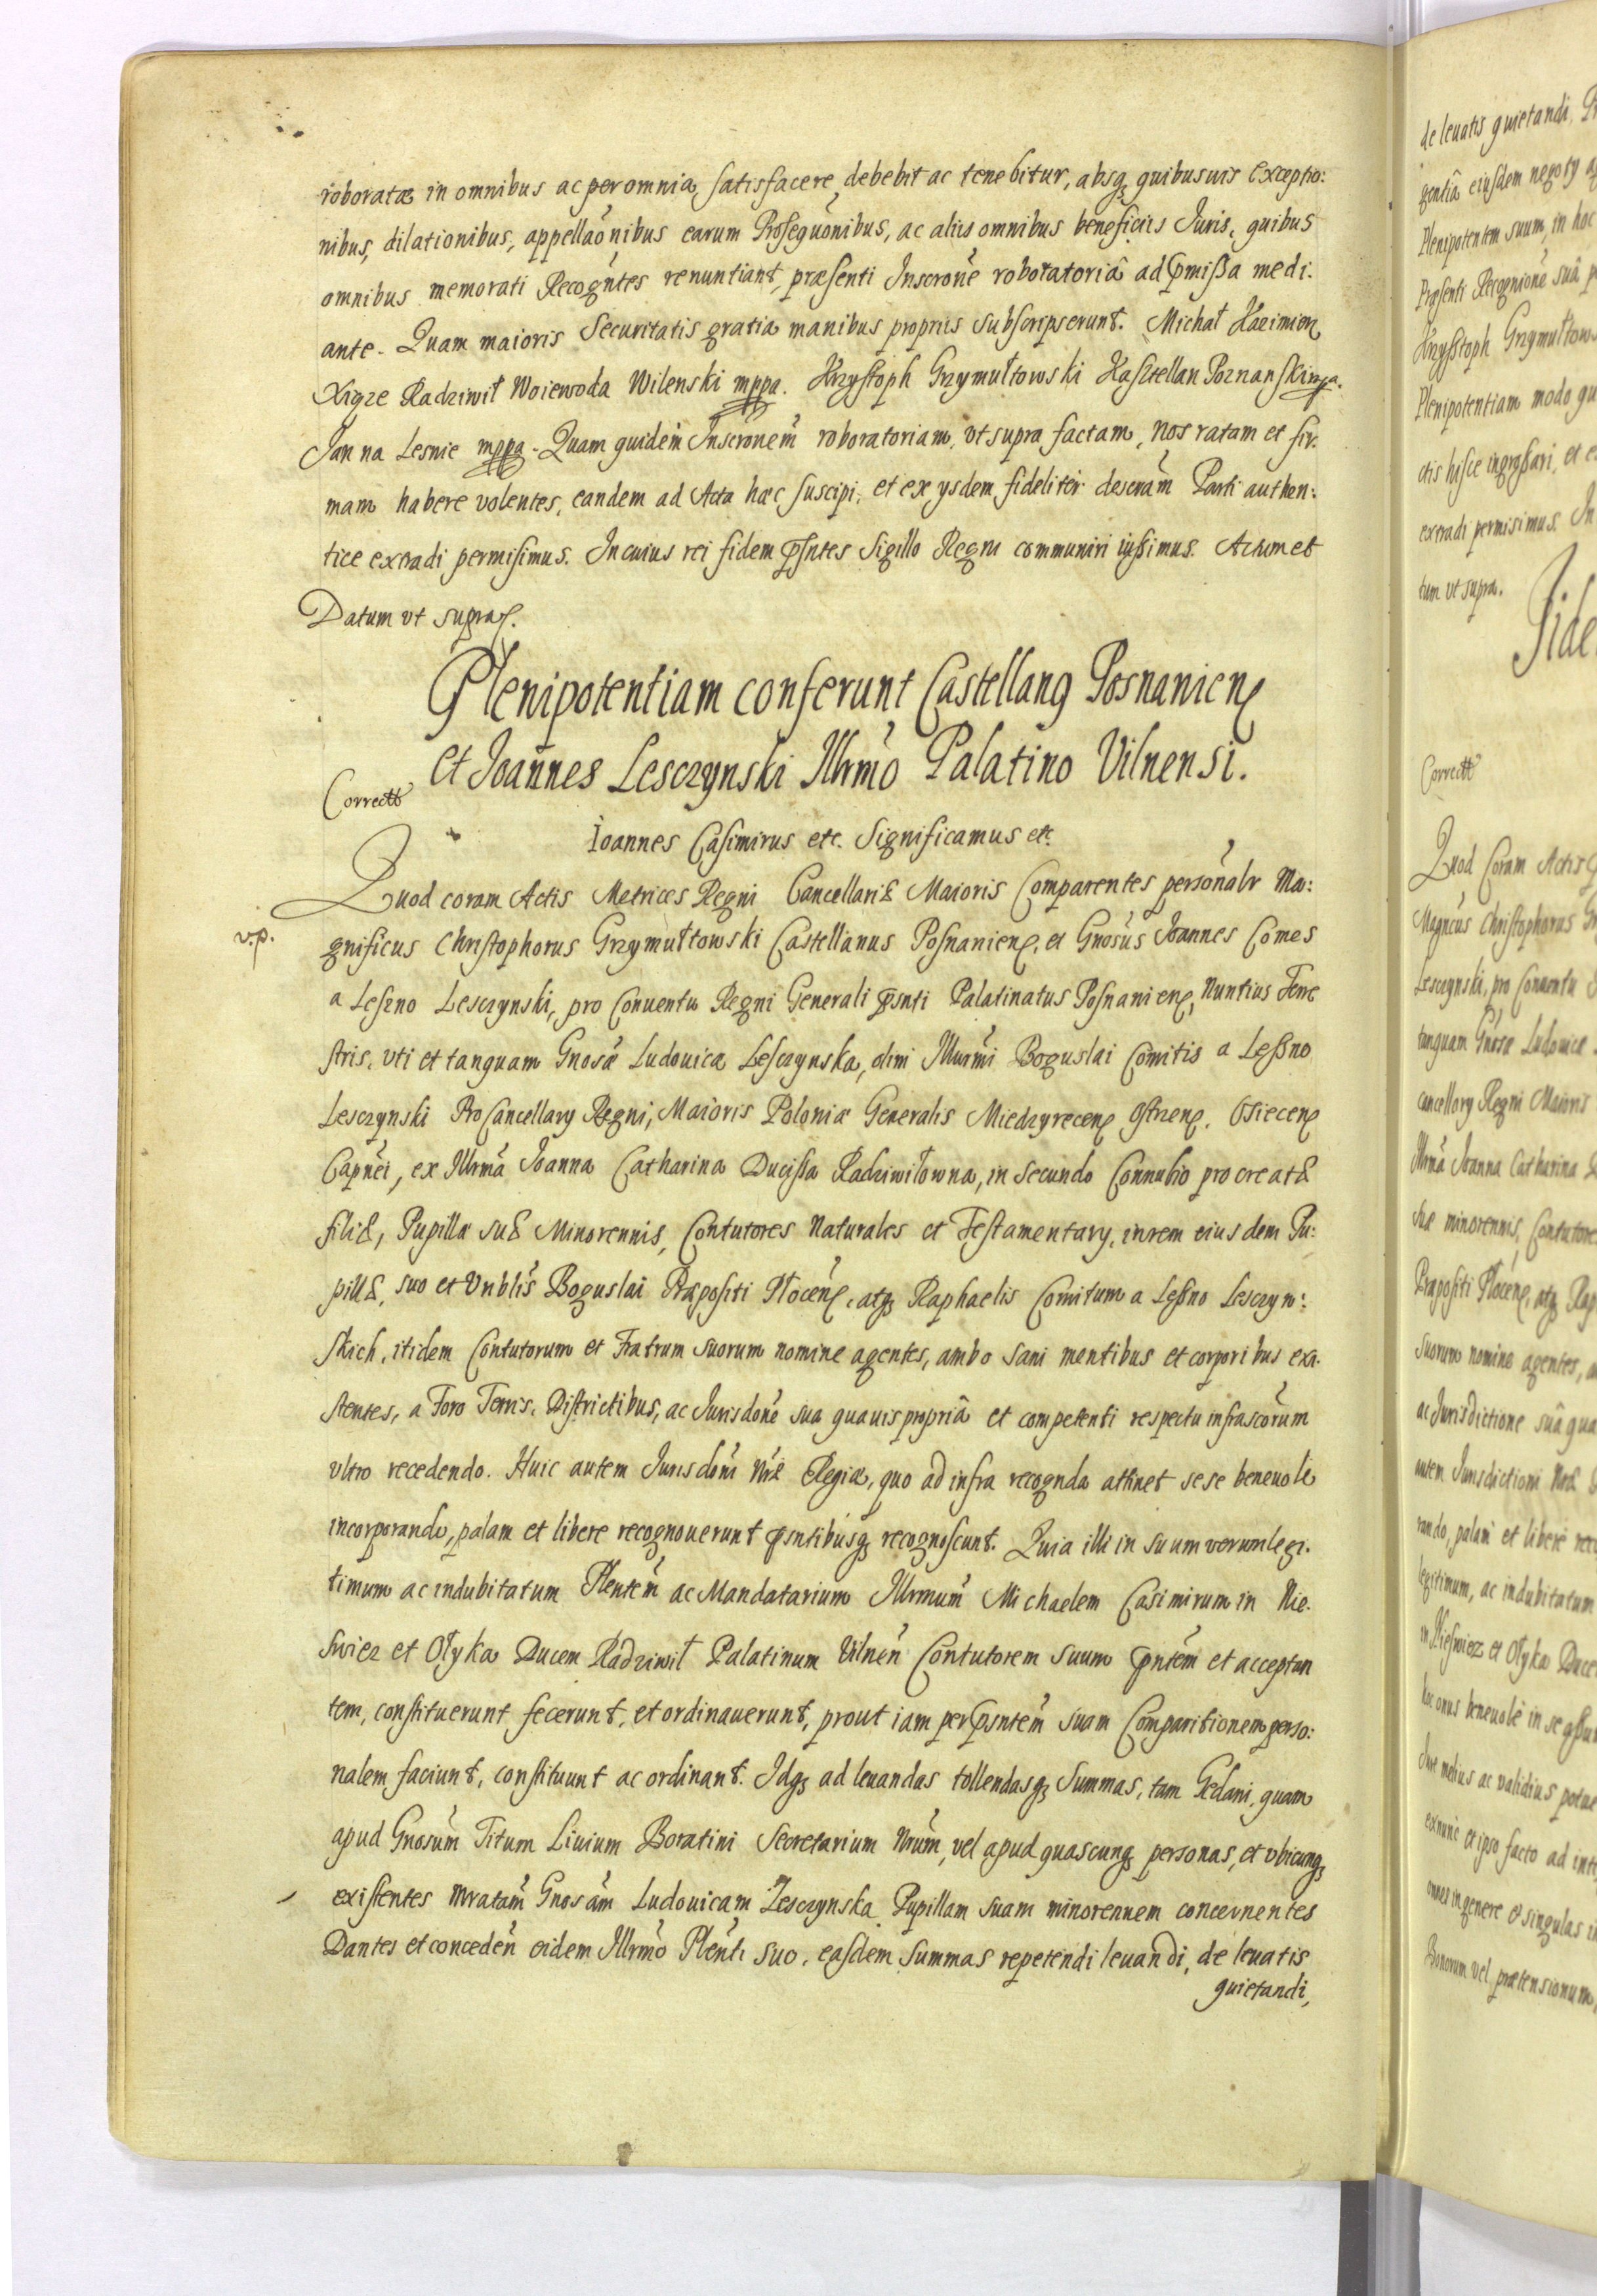 roboratæ in omnibus ac per omnia satisfacere debebit ac tenebitur, absq3 quibusuis exceptio:
nibus, dilationibus, appellaõnibus earum Prosequõnibus, ac aliis omnibus beneficiis Iuris, quibus
omnibus memorati Recogñtes renuntiant, præsenti Inscrõne roboratoriâ ad pmissa medi:
ante. Quam maioris Securitatis gratia manibus propriis subscripserunt. Michał Kazimierz
Xiąze Radziwił Woiewoda Wilenski mppa. Krzysztoph Grzymułtowski Kasztellan Poznanski mppa.
Jan na Lesnie mppa. Quam quidem Inscrõnem roboratoriam, vt supra factam, nos ratam et fir:
mam habere volentes, eandem ad Acta hæc suscipi, et ex ysdem fideliter descrãm Parti authen:
tice extradi permisimus. In cuius rei fidem psñtes Sigillo Regni communiri iussimus. Actum et
Datum vt supra.
Plenipotentiam conferunt Castellang Posnanien
et Joannes Lesczynski Illrmo Palatino Vilnensi.
Correctt
Ioannes Casimirus etc. Significamus etc.
Quod coram Actis Metrices Regni Cancellariæ Maioris Comparentes personalr Ma:
v.p.
gnificus Christophorus Grzymułtowski Castellanus Posnanien, et Gnosus Joannes Comes
a Leszno Lesczynski, pro Conuentu Regni Generali psnti Palatinatus Posnanien, Nuntius Terre
stris, vti et tanquam Gnosæ Ludouica Lesczynska, olim Illurmi Boguslai Comitis a Lessno
Lesczynski ProCancellary Regni, Maioris Poloniæ Generalis Miedzyrecen Ostrzen, Osiecen
Capnei, ex Illrma Joanna Catharina Ducissa Radziwiłowna, in secundo Connubio procreatæ
filiæ, Pupillæ suæ Minorennis, Contutores Naturales et Testamentary, in rem eiusdem Pu:
pillæ, suo et Vnblis Boguslai Præpositi Płocen, atq3 Raphaelis Comitum a Lessno Lesczyn:
skich, itidem Contutorum et Fratrum suorum nomine agentes, ambo sani mentibus et corporibus exi:
stentes, a Foro Terris, Districtibus, ac Jurisdone sua quauis propriâ et competenti respectu infrascõrum
vltro recedendo. Huic autem Jurisdoni Nræ Regiæ, quo ad infra recognda attinet sese beneuole
incorporando, palam et libere recognouerunt psntibusq3 recognoscunt. Quia illi in suum verum legi:
timum ac indubitatum Plentem ac Mandatarium Illrmum Michaelem Casimirum in Nie:
swiez et Ołyka Ducem Radziwił Palatinum Vilnen Contutorem suum pntem et acceptan
tem, constituerunt fecerunt, et ordinauerunt, prout iam per psntem suam Comparitionem perso:
nalem faciunt, constituunt ac ordinant. Idq3 ad leuandas tollendasq3 Summas, tam Gedani, quam
apud Gnosum Titum Liuium Boratini Secretarium Nrum, vel apud quascunq3 personas, et vbicunq3
existentes mratam Gnosam Ludouicam Lesczynska Pupillam suam minorennem concernentes
Dantes et conceden eidem Illrmo Plenti suo, easdem Summas repetendi leuandi, de leuatis
quietandi,
de leuatis quietandi,
gentiâ eiusdem negoty
Plenipotentem suum, in hoc
Præsenti Recognione suâ
Krzysstoph Grzymułtows
Plenipotentiam modo
ctis hisce ingrossari, et
extradi permisimus. In
tum vt supra.
Fide
Correctt
Quod Coram Actis
Magncus Christophorus
Lesczynski, pro Conuentu
tanquam Gnosæ Ludouicæ
cancellary Regni Maioris
Illrma Joanna Catharina
suæ minorennis, Contutore
Præpositi Płocen, atq3 Rap
suorum nomine agentes,
ac Jurisdictione suâ qua
autem Jurisdictioni Nræ
rando, palam et libere rec
legitimum, ac indubitatum
in Nieswiez et Ołyka Duce
hoc onus beneuolè in se
Jure melius ac validius potue
ex nunc et ipso facto ad
omnes in genere et singulas
Bonorum vel prætensionum